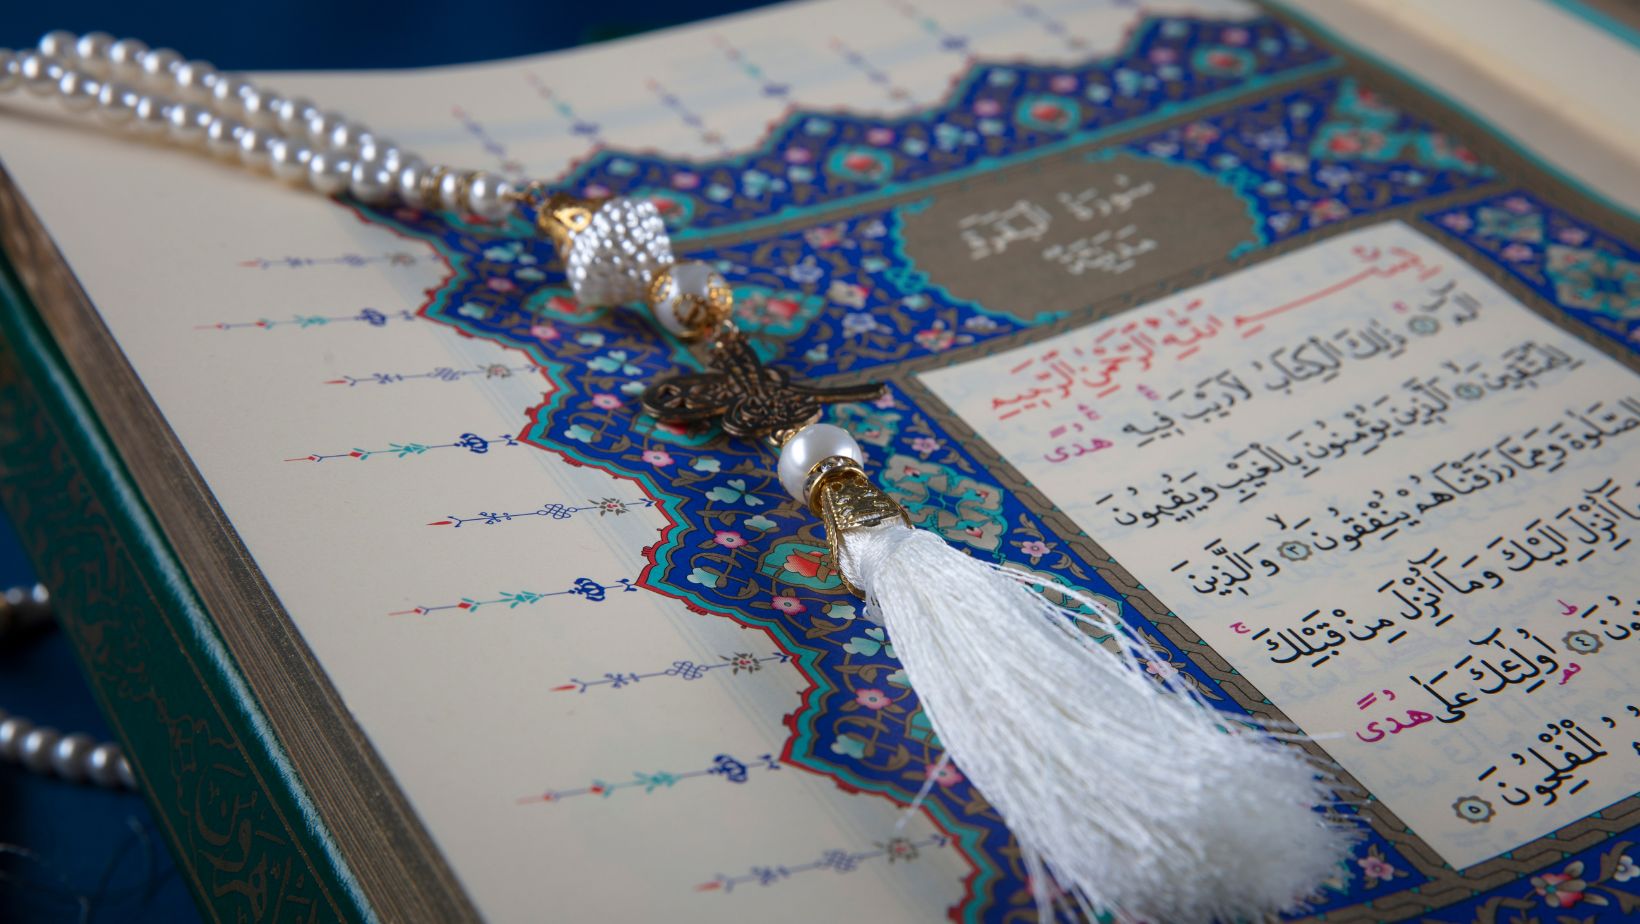 سُورَةُ الْبَقَرَةِ
مَدَنِيَّة
بِسْمِ اللّٰهِ الرَّحْمٰنِ الرَّحِيمِ
الٓمٓ ۝١ ذٰلِكَ الْكِتَابُ لَا رَيْبَ فِيهِ هُدًى
لِلْمُتَّقِينَ ۝٢ اَلَّذِينَ يُؤْمِنُونَ بِالْغَيْبِ وَيُقِيمُونَ
الصَّلٰوةَ وَمِمَّا رَزَقْنَاهُمْ يُنْفِقُونَ ۝٣ وَالَّذِينَ
بِمَا اُنْزِلَ اِلَيْكَ وَمَا اُنْزِلَ مِنْ قَبْلِكَ
۝٤ اُو۬لٰٓئِكَ عَلٰى هُدًى
الْمُفْلِحُونَ ۝٥